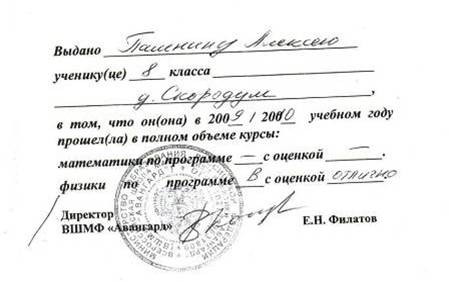 Выдано Паленину Алексею
ученику(це) 8 класса
д. Скородум,
в том, что он(она) в 2009 / 2010 учебном году
прошел(ла) в полном объеме курсы:
математики по программе — с оценкой —,
физики по программе В с оценкой отлично
Директор
ВШМФ «Авангард» Е.Н. Филатов